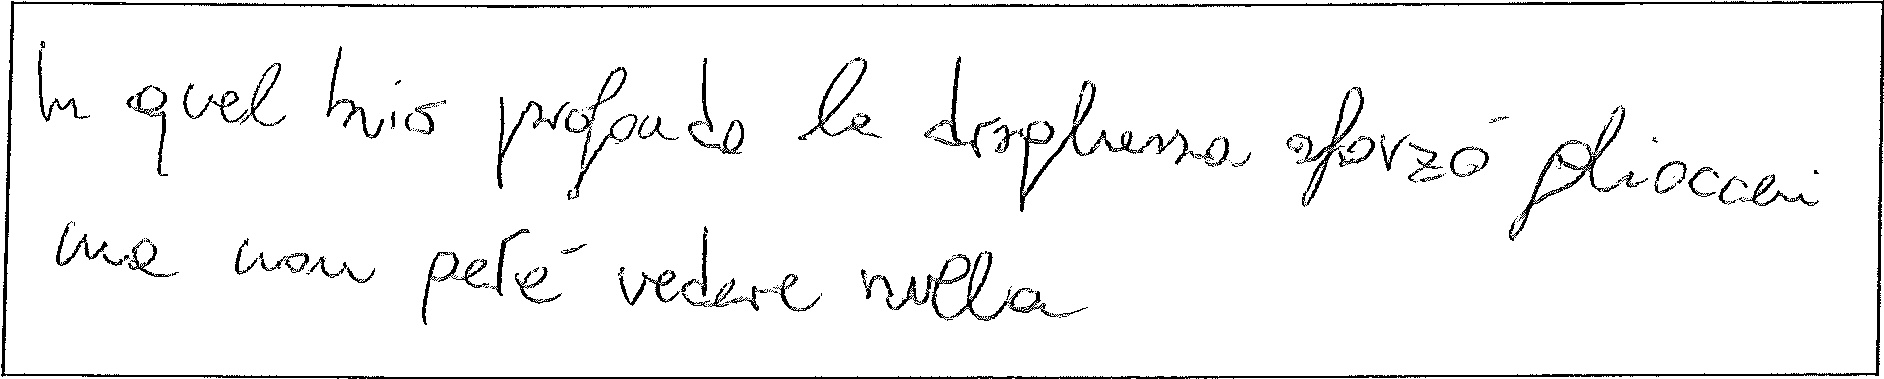 In quel buio profondo la draghessa sforzò gliocchi
ma non peté vedere nulla